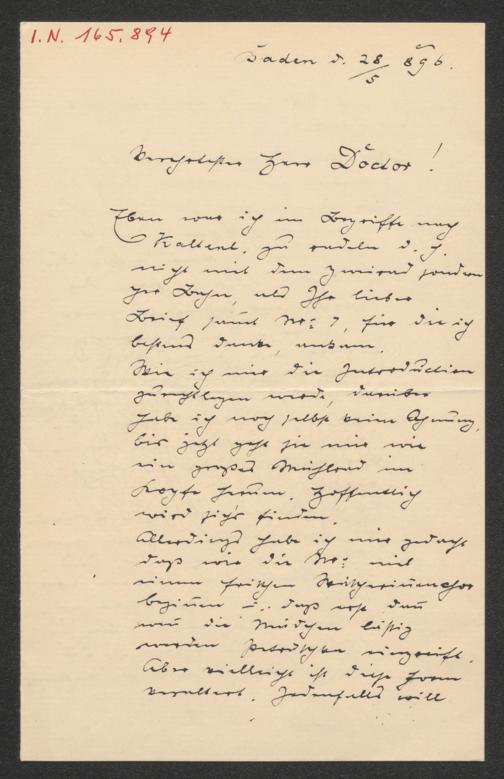 I.N. 165.894
Baden d. 28/5 896.
Verehrtester Herr Doctor!
Eben war ich im Begriffe nach
Kaltenl. zu radeln d. h.
nicht mit dem Zweirad sondern
per Bahn, als Ihr lieber
Brief sammt No: 7, für die ich
bestens danke, ankam.
Wie ich mir die Introduction
zurechtlegen werde, darüber
habe ich noch selbst keine Ahnung,
bis jetzt geht sie mir wie
ein großes Mühlrad im
Kopfe herum. Hoffentlich
wird sich's finden.
Allerdings habe ich mir gedacht
daß wir die No: mit
einem frischen Wäscherinnenchor
beginnen u. daß erst dann
wenn die Mädchen lustig
werden eingreift.
Aber vielleicht ist diese Form
veraltert. Jedenfalls will